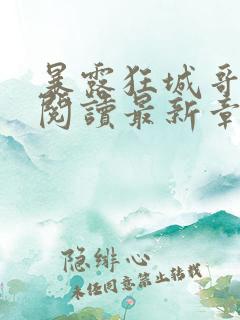 暴露狂城哥
閱讀最新章
隐绯心
未经同意禁止转载